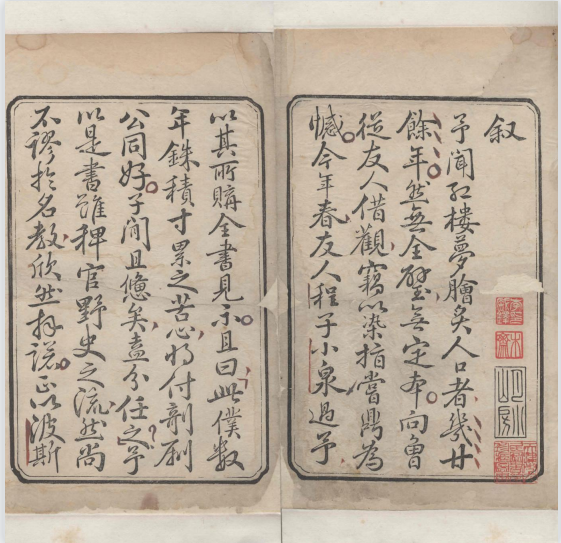 叙
予闻红楼夢膾炙人口者幾廿
餘年然無全璧无定本向曾
從友人借觀竊以染指嘗鼎為
憾今年春友人程子小泉過予
以其所購全書見示且曰此僕数
年銖積寸累之苦心将付剞劂
公同好子閒且憊矣盍分任之予
以是書雖稗官野史之流然尚
不謬於名教欣然拜諾正以波斯